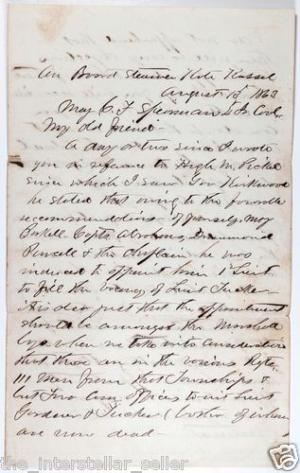 On Board Steamer Kate Kassel
August 1st 1863
Maj C. F. Spearman
My old friend
A day or two since I wrote
you in reference to Hugh M.
since which I saw Gov Kirkwood
he stated that owing to the favorable
recommendations of yourself, Maj
Capts Abraham, Drummond
Powell & the chaplain he was
induced to appoint him 1st Lieut
to fill the vacancy of Lieut Tucker
just that the appointment
should be amongst the Marshall
boys when we take into consideration
that there are in the various Regts
111 men from that Township &
but two Comy offices to wit Lieut
Gardner & Tucker (both of whom
are now dead
© the_interstellar_seller